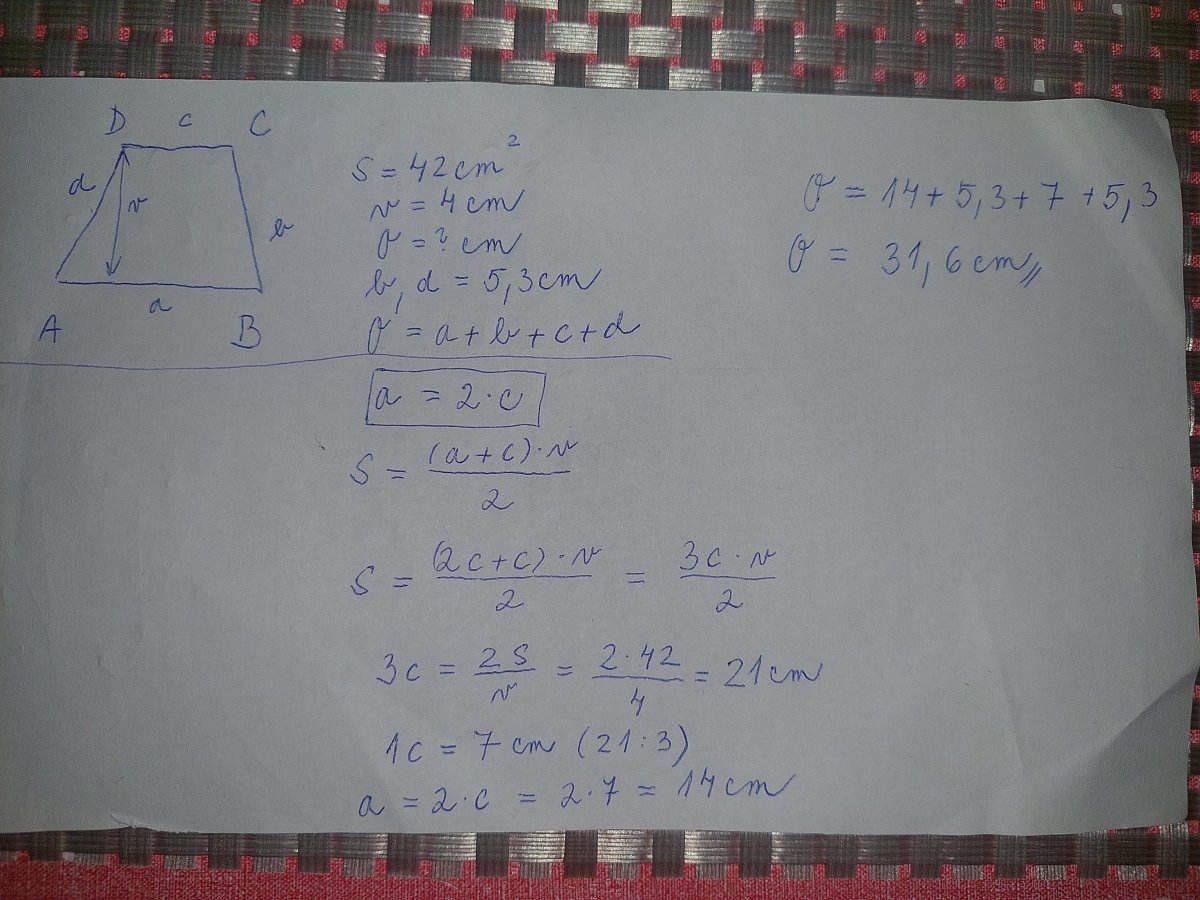 D c C
d v b
a
A B
S = 42 cm²
v = 4 cm
O = ? cm
b, d = 5,3 cm
O = a + b + c + d
a = 2 · c
S = (a + c) · v / 2
S = (2c + c) · v / 2 = 3c · v / 2
3c = 2S / v = 2 · 42 / 4 = 21 cm
1c = 7 cm (21 : 3)
a = 2 · c = 2 · 7 = 14 cm
O = 14 + 5,3 + 7 + 5,3
O = 31,6 cm